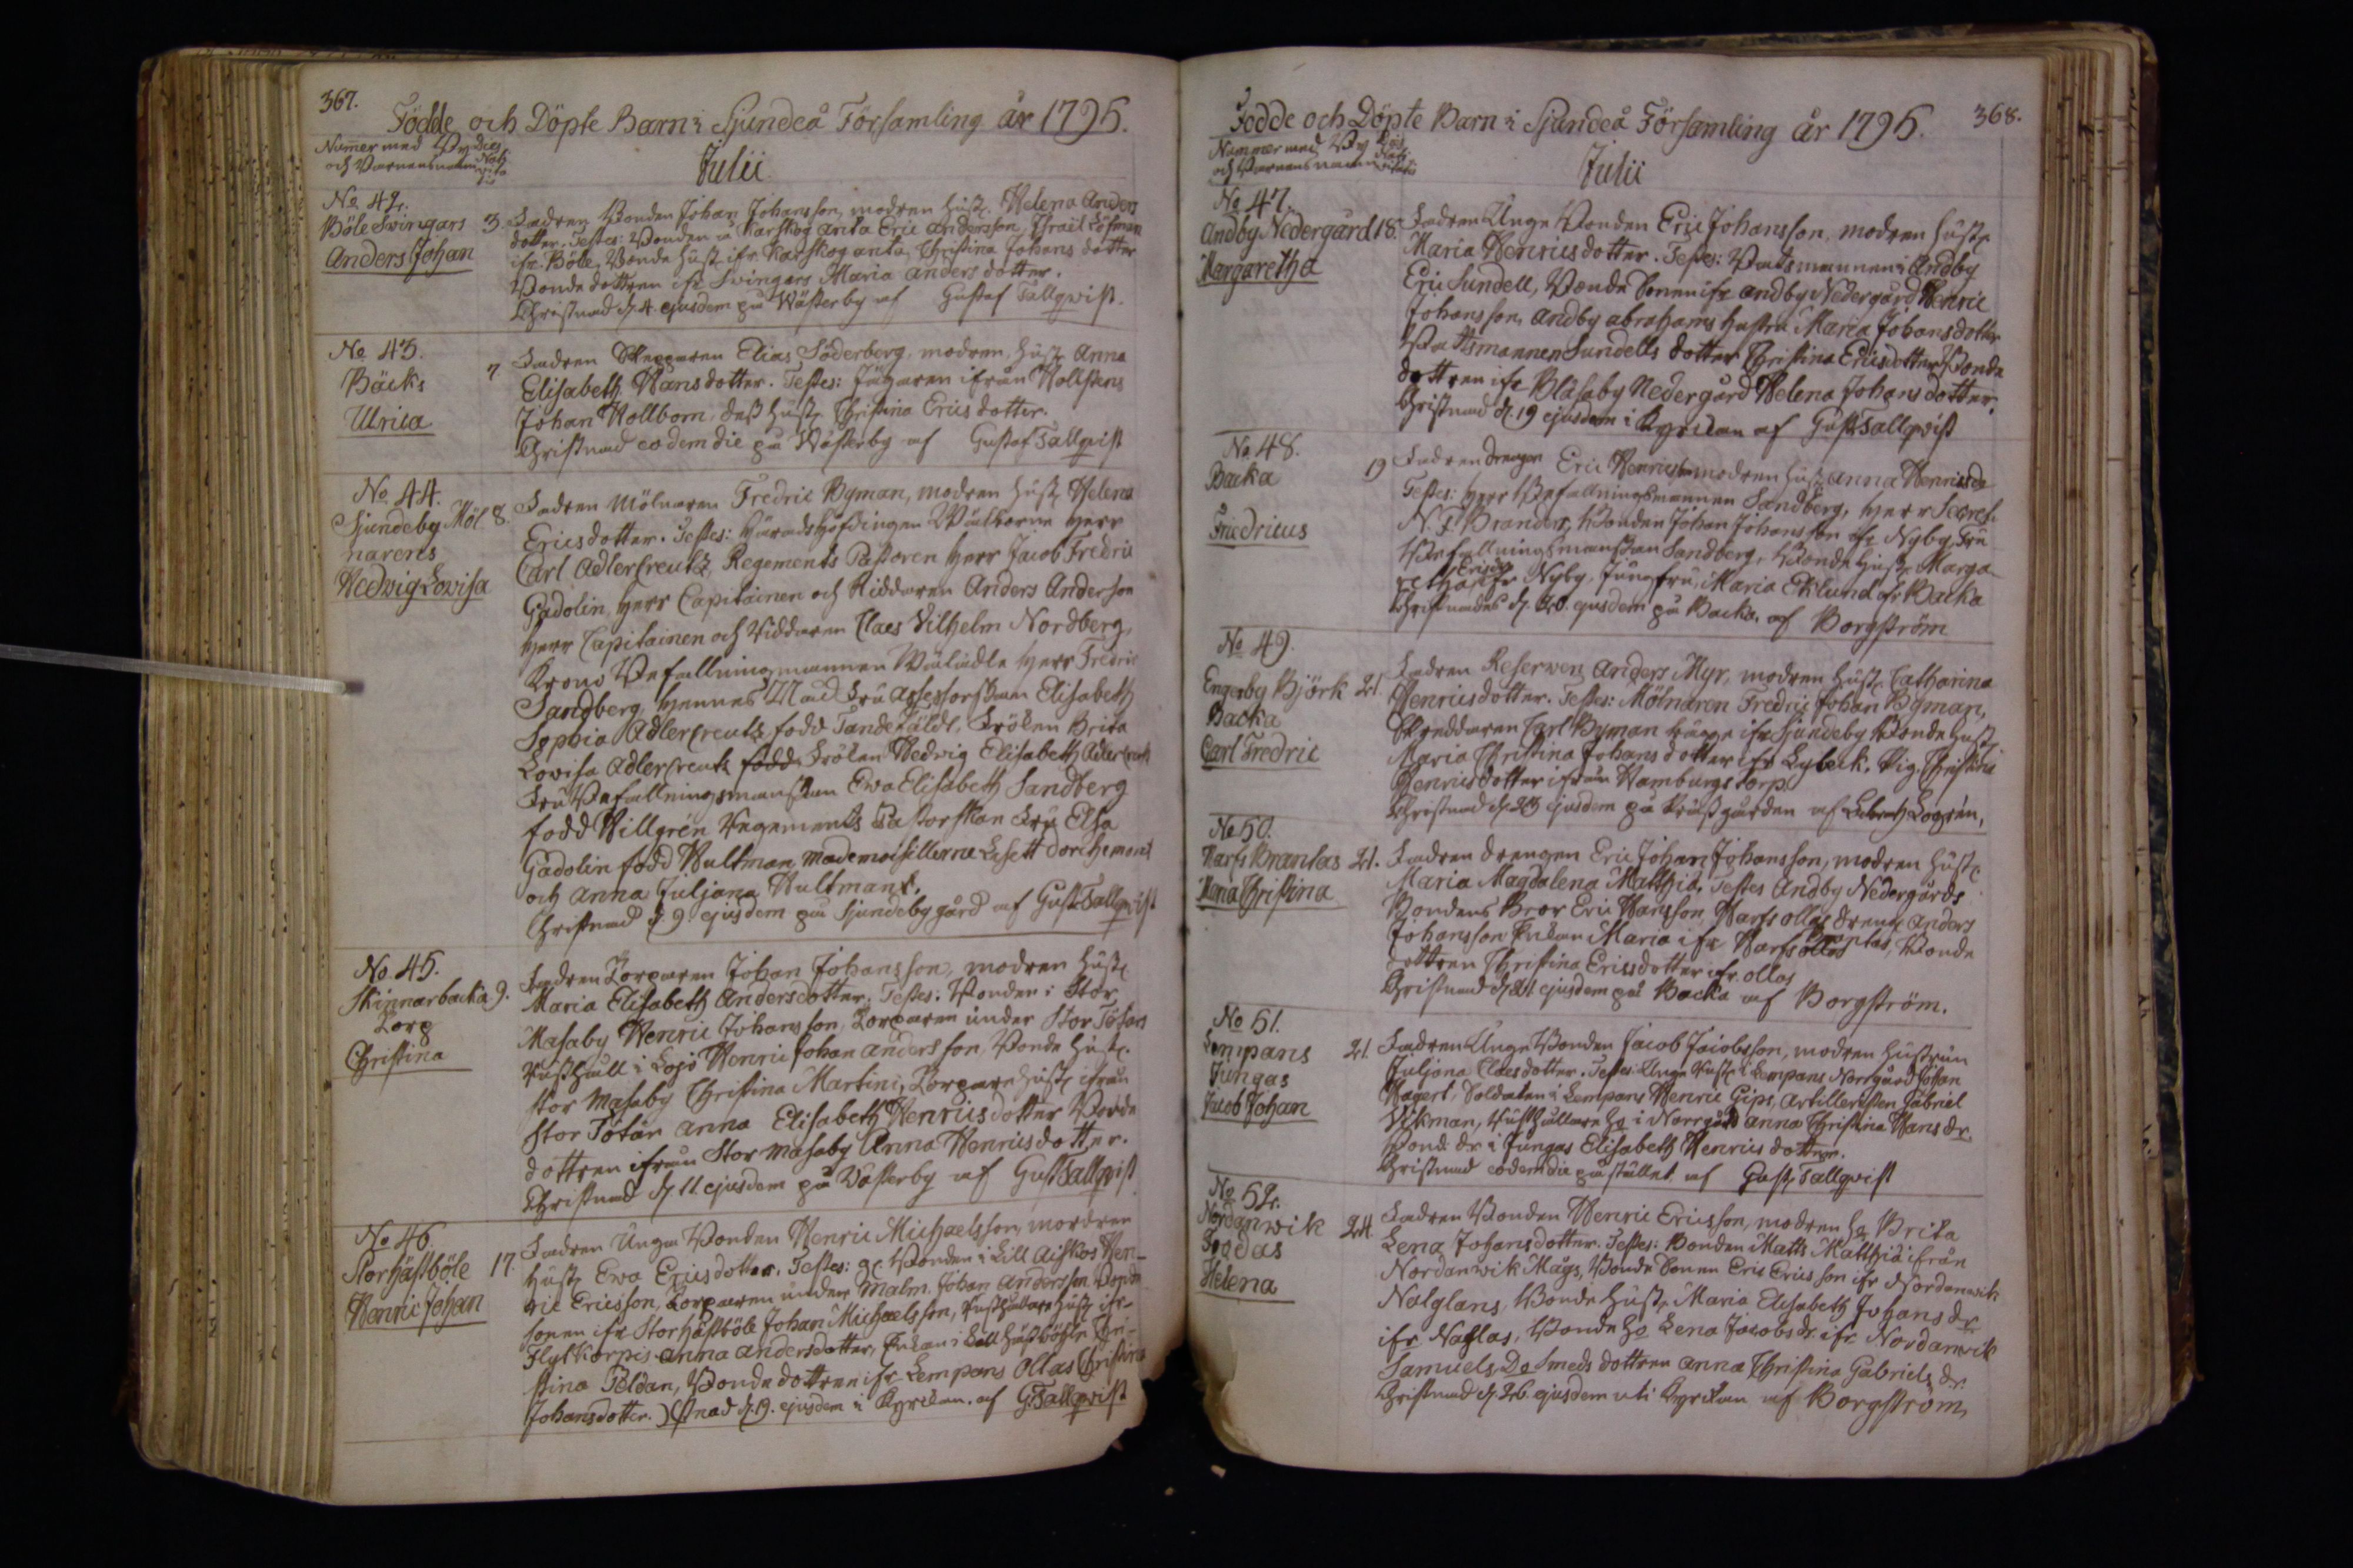 367.
Födde och Döpte Barn i Sjundeå Församling år 1795.
Numer med By Dies
och Barnens namn Nati
vita
tis
Julii
No 42.
Böle Svingars
Anders Johan
3. Fadren Bonden Johan Johansson, modren hust. Helena Anders
dotter. Testes: Bonden i Karskog anta Eric Andersson, Israël Löfman
ifr. Böle, Bonde hust. ifr. Karskog anta, Christina Johans dotter
Bonde dottren ifr Svingars Maria Anders dotter.
Christnad d. 4. ejusdem på Wästerby af Gustaf Tallqwist.
No 43.
Bäcks
Ulrica
7 Fadren Skepparen Elias Söderberg, modren, hust. Anna
Elisabeth Hansdotter. Testes: Jägaren ifrån Hollstens
Johan Hollborn, dess hust. Christina Erics dotter.
Christnad eodem die på Wästerby af Gustaf Tallqvist
No 44.
Sjundeby Möl
narens
Hedwig Lovisa
8. Fadren Mölnaren Fredric Byman, modren hust. Helena
Ericsdotter. Testes: Häradshöfdingen Wälborne Herr
Carl AdlerCreutz, Regements Pastoren Herr Jacob Fredric
Gadolin, Herr Capitainen och Riddaren Anders Anderson
Herr Capitainen och Riddaren Claes Vilhelm Nordberg,
Krono Befallningsmannen Wäläde Herr Fredric
Sandberg, Hennes Nåd Fru Assessorskan Elisabeth
Sophia Adlercreutz född Tandefäldt, Fröken Brita
Lovisa Adlercreutz född Fröken Hedvig Elisabeth Adlercreutz
Fru Befallningsmanskan Ewa Elisabeth Sandberg
född Hillgrén Regements Pastorskan Fru Elsa
Gadolin född Hultman, Mademoisellerne Lisett Dorchemont
och Anna Juljana Hultman.
Christnad d. 9. ejusdem på Sjundeby gård af Gust. Tallqvist
No 45.
Skinnarbacka
Torp
Christina
9. Fadren Torparen Johan Johansson, modren hust.
Maria Elisabeth Andersdotter. Testes: Bonden i Stor
Masaby Henric Johansson, Torparen under Stor Tötars
Rusthåll i Lojo Henric Johan Andersson, Bonde hust.
Stor Masaby Christina Martini, Torpare hust. ifrån
Stor Tötär Anna Elisabeth Henricsdotter Bonde
dottren ifrån Stor Masaby Anna Henricsdotter.
Christnad d. 11. ejusdem på Västerby af Gust Tallqvist
No 46.
Storhästböle
Henric Johan
17. Fadren Unga Bonden Henric Michaelsson, modren
hust. Ewa Ericsdotter. Testes: Bonden i Lill Aiskos Hen-
ric Ericsson, Torparen under Malm. Johan Andersson Bonde
sonen ifr Storhästböle Johan Michaelsson, Rusthållare hust. ifr-
Flytkärpis Anna Andersdotter, Enkan i Lill hästböhle Chri-
stina Poldan, Bonde dottren ifr Lempans Ollas Christina
Johansdotter. Xstnad d. 19. ejusdem i Kyrckan. af G. Tallqvist
368.
Födde och Döpte Barn i Sjundeå Församling år 1795.
Nummer med By Dies
och Barnens namn
Julii
No 47.
Andby Nedergård
Margaretha
18. Fadren Unge Bonden Eric Johansson, modren hust.
Maria Henricsdotter. Testes: Båtsmannen i Andby
Eric Sundell, Bonde Sonen ifr Andby Nedergård Henric
Johansson, Andby Abrahams hustru Maria Johansdotter
Båtsmannen Sundells dotter Christina Ericsdotter Bonde
dottren ifr Bläsaby Nedergård Helena Johans dotter.
Christnad d. 19 ejusdem i Kyrckan af Gust. Tallqvist
No 48.
Backa
Friedricus
19 Fadren drengen Eric Henricsson modren hust. Anna Henricsdr
Testes: Herr Befallningsmannen Sandberg, Herr Secret.
N. F. Brander, Bonden Johan Johansson ifr Nyby, Fru
Befallningsmanskan Sandberg, Bonde hust. Marga-
retha Ericsdr ifr Nyby, Jungfru, Maria Eklund ifr Backa
Christnades d. 20. ejusdem på Backa. af Borgström
No 49.
Engesby Björk
Backa
Carl Fredric
21. Fadren Reserven Anders Myr, modren hust. Catharina
Henricsdotter. Testes: Mölnaren Fredric Johan Byman,
Skreddaren Carl Byman bägge ifr Sjundeby Bonde hust.
Maria Christina Johans dotter ifr Lybeck, Pig. Christina
Henricsdotter ifrån Hamburgs torp.
Christnad d. 23 ejusdem på Prästgården af Logrén,
No 50.
Harfs Brantas
Lena Christina
21. Fadren drengen Eric Johan Johansson, modren hust.
Maria Magdalena Matthiæ. Testes Andby Nedergårds
Bondens Bror Eric Hansson, Harfs ollas dreng Anders
Johansson Enkan Maria ifr Harfs Brantas, Bonde
dottren Christina Ericsdotter ifr. ollas
Christnad d. 21 ejusdem på Backa af Borgström.
No 51.
Lempans
Jungas
Jacob Johan
21. Fadren Unge Bonden Jacob Jacobsson, modren hustrun
Juljana Claesdotter. Testes: Unge Rust. i Lempans Norrgård Johan
Hagert, Soldaten i Lempans Henric Gips, Artilleristen Gabriel
Vikman, Rusthållare H. i Norrgård Anna Christina Hans dr.
Bond. dr i Jungas Elisabeth Henrics dotter.
Christnad eodem die på stället af Gust. Tallqvist
No 52.
Nordanwik
Helena
24. Fadren Bonden Henric Ericsson, modren h. Brita
Lena Johansdotter. Testes: Bonden Matts Matthiæ ifrån
Nordanwik Mågs, Bonde Sonen Eric Ericsson ifr Nordanwik
Nalglans, Bonde hust. Maria Elisabeth Johans dr
ifr Naglas, Bonde h. Lena Jacobs dr. ifr Nordanwik
Samuels Do Smeds dottren Anna Christina Gabriels dr.
Christnad d. 26. ejusdem uti Kyrckan af Borgström